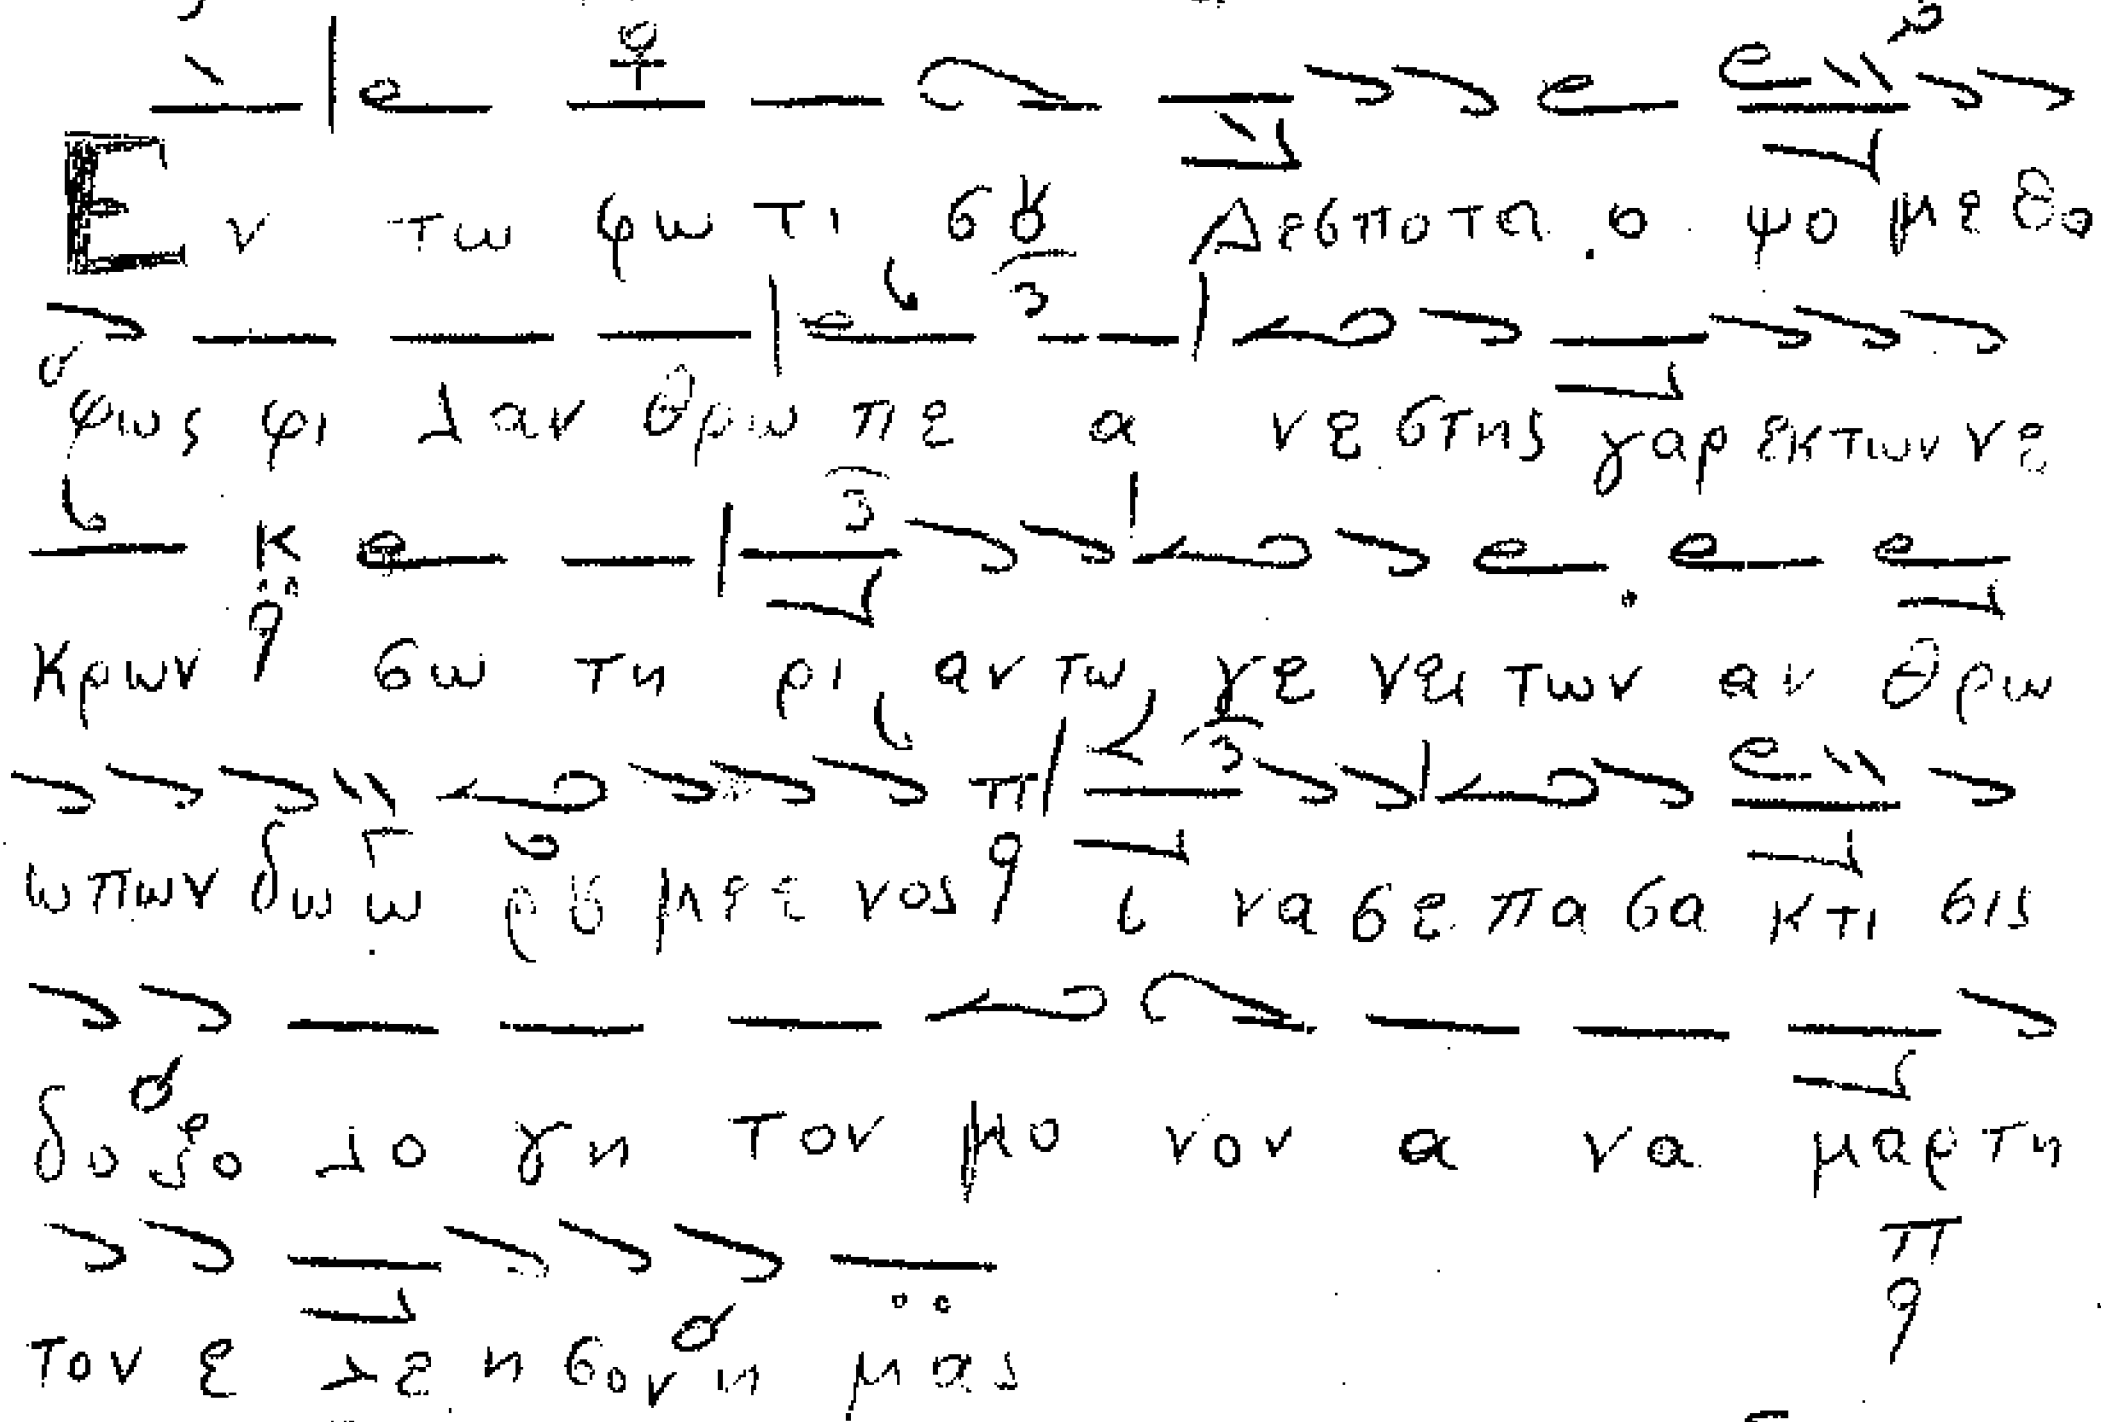 Εν τω φωτι σȣ Δεσποτα ο ψο με θα
φως φι λαν θρω πε α νεστης γαρ εκ των νε
κρων σω τη ρι αν τω γε νει των αν θρω
ω πων δω ω ρȣ με ε νος ι να σε πα σα κτι σις
δο ξο λο γη τον μο νον α να μαρ τη
τον ε λε η σον η μας